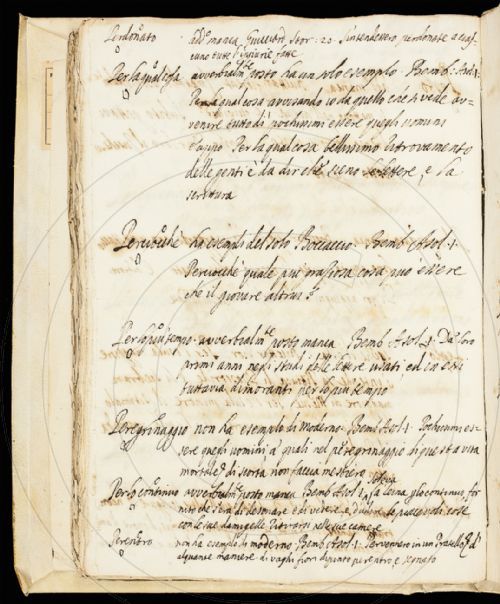 Perdonato add. manca Guicciard. Stor. 20. S'intendessero perdonate a cias=
cuno tutte l'ingiurie fatte
Per la qual cosa avverbialm.te posto ha un solo esempio. Bemb. Asol. 1.
Per la qual cosa avvisando io da quello che si vede av=
venire tutto dì pochissimi essere quegli uomini
E appo Per la qual cosa bellissimo ritrovamento
delle genti è da dir che sieno le lettere, e la
scrittura
Perciocché ha esempi del solo Boccaccio. Bemb. Asol. 1.
Perciocché quale più graziosa cosa può essere
che il giovare altrui?
Per lo più tempo. avverbialm.te posto manca Bemb. Asol. 1. De' loro
primi anni negli studi delle lettere usati ed in essi
tuttavia dimoranti per lo più tempo
Peregrinaggio non ha esempio di Moderno. Bemb. Asol. 1. Pochissimi es=
sere quegli uomini a' quali nel peregrinaggio di questa vita
mortale di scorta non faccia mestiero
Per lo continuo avverbialm.te posto manca Bemb. Asol. 1. la Reina per lo continuo for
nito che s'era di desinare e di vedere, e d'udire le piacevoli cose
con le sue damigelle ritrarsi nelle sue camere
Perentro non ha esempio di moderno Bemb. Asol. 1. Pervennero in un Pratello
alquante maniere di vaghi fiori dipinto per entro e segnato